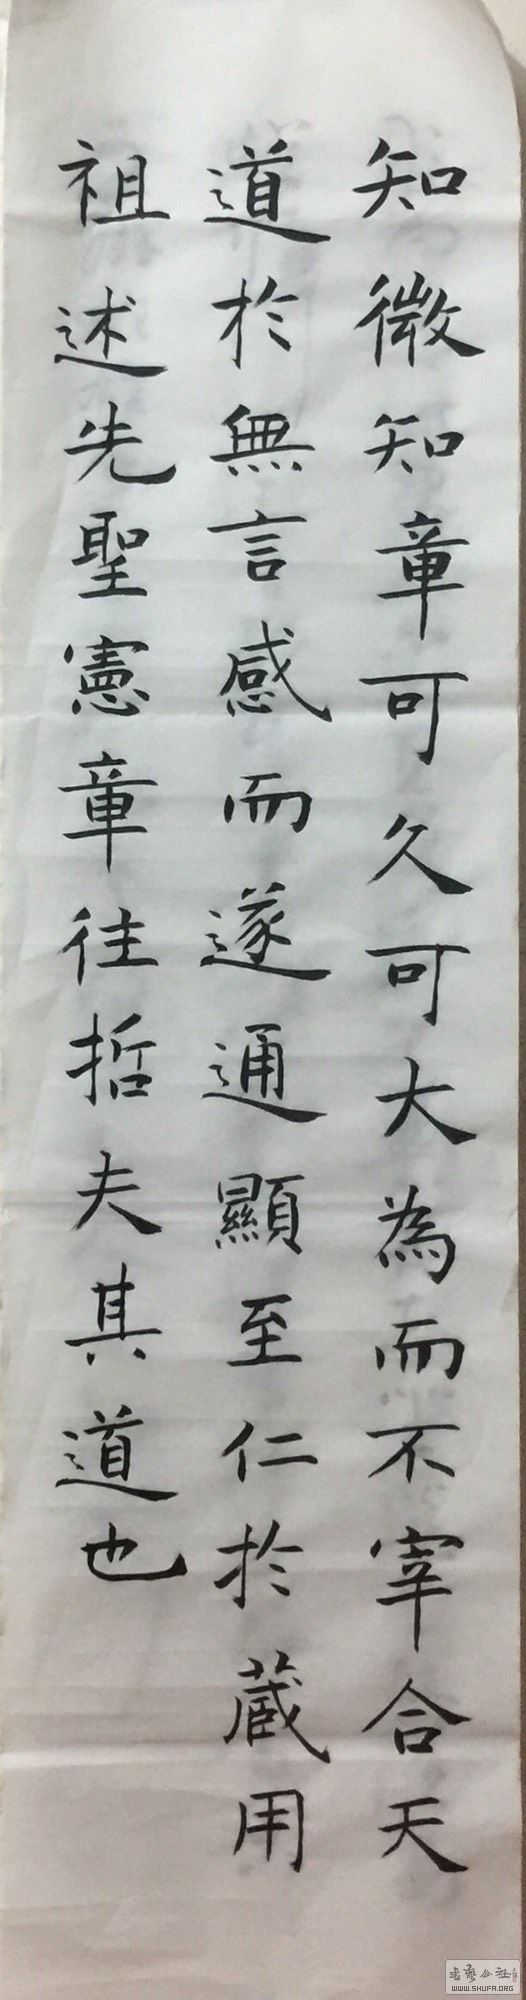 知微知章可久可大為而不宰合天
道於無言感而遂通顯至仁於蔵用
祖述先聖憲章往哲夫其道也
書藝公社
WWW.SHUFA.ORG